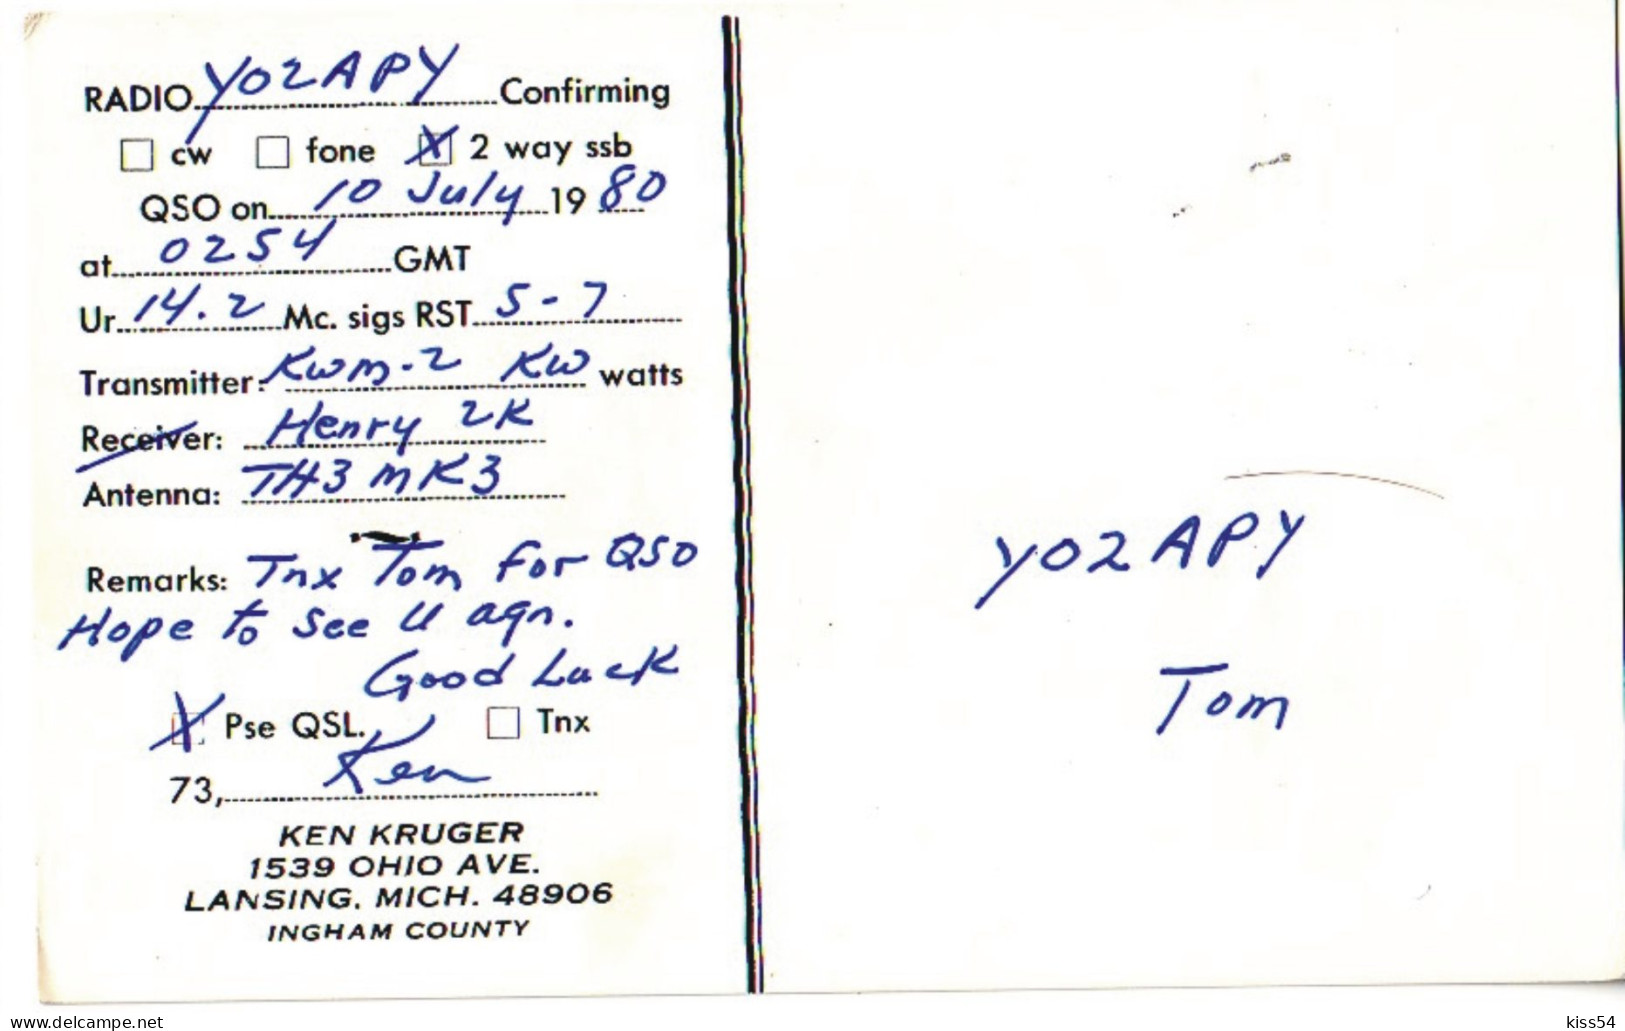 RADIO YO2APY Confirming
cw fone X 2 way ssb
QSO on 10 July 1980
at 0254 GMT
Ur 14.2 Mc. sigs RST 5-7
Transmitter: KWM-2 KW watts
Receiver: Henry 2K
Antenna: TH3 MK3
Remarks: Tnx Tom for QSO
Hope to See U agn.
Good Luck
X Pse QSL. Tnx
73, Ken
KEN KRUGER
1539 OHIO AVE.
LANSING, MICH. 48906
INGHAM COUNTY
YO2APY
Tom
www.delcampe.net
kiss54